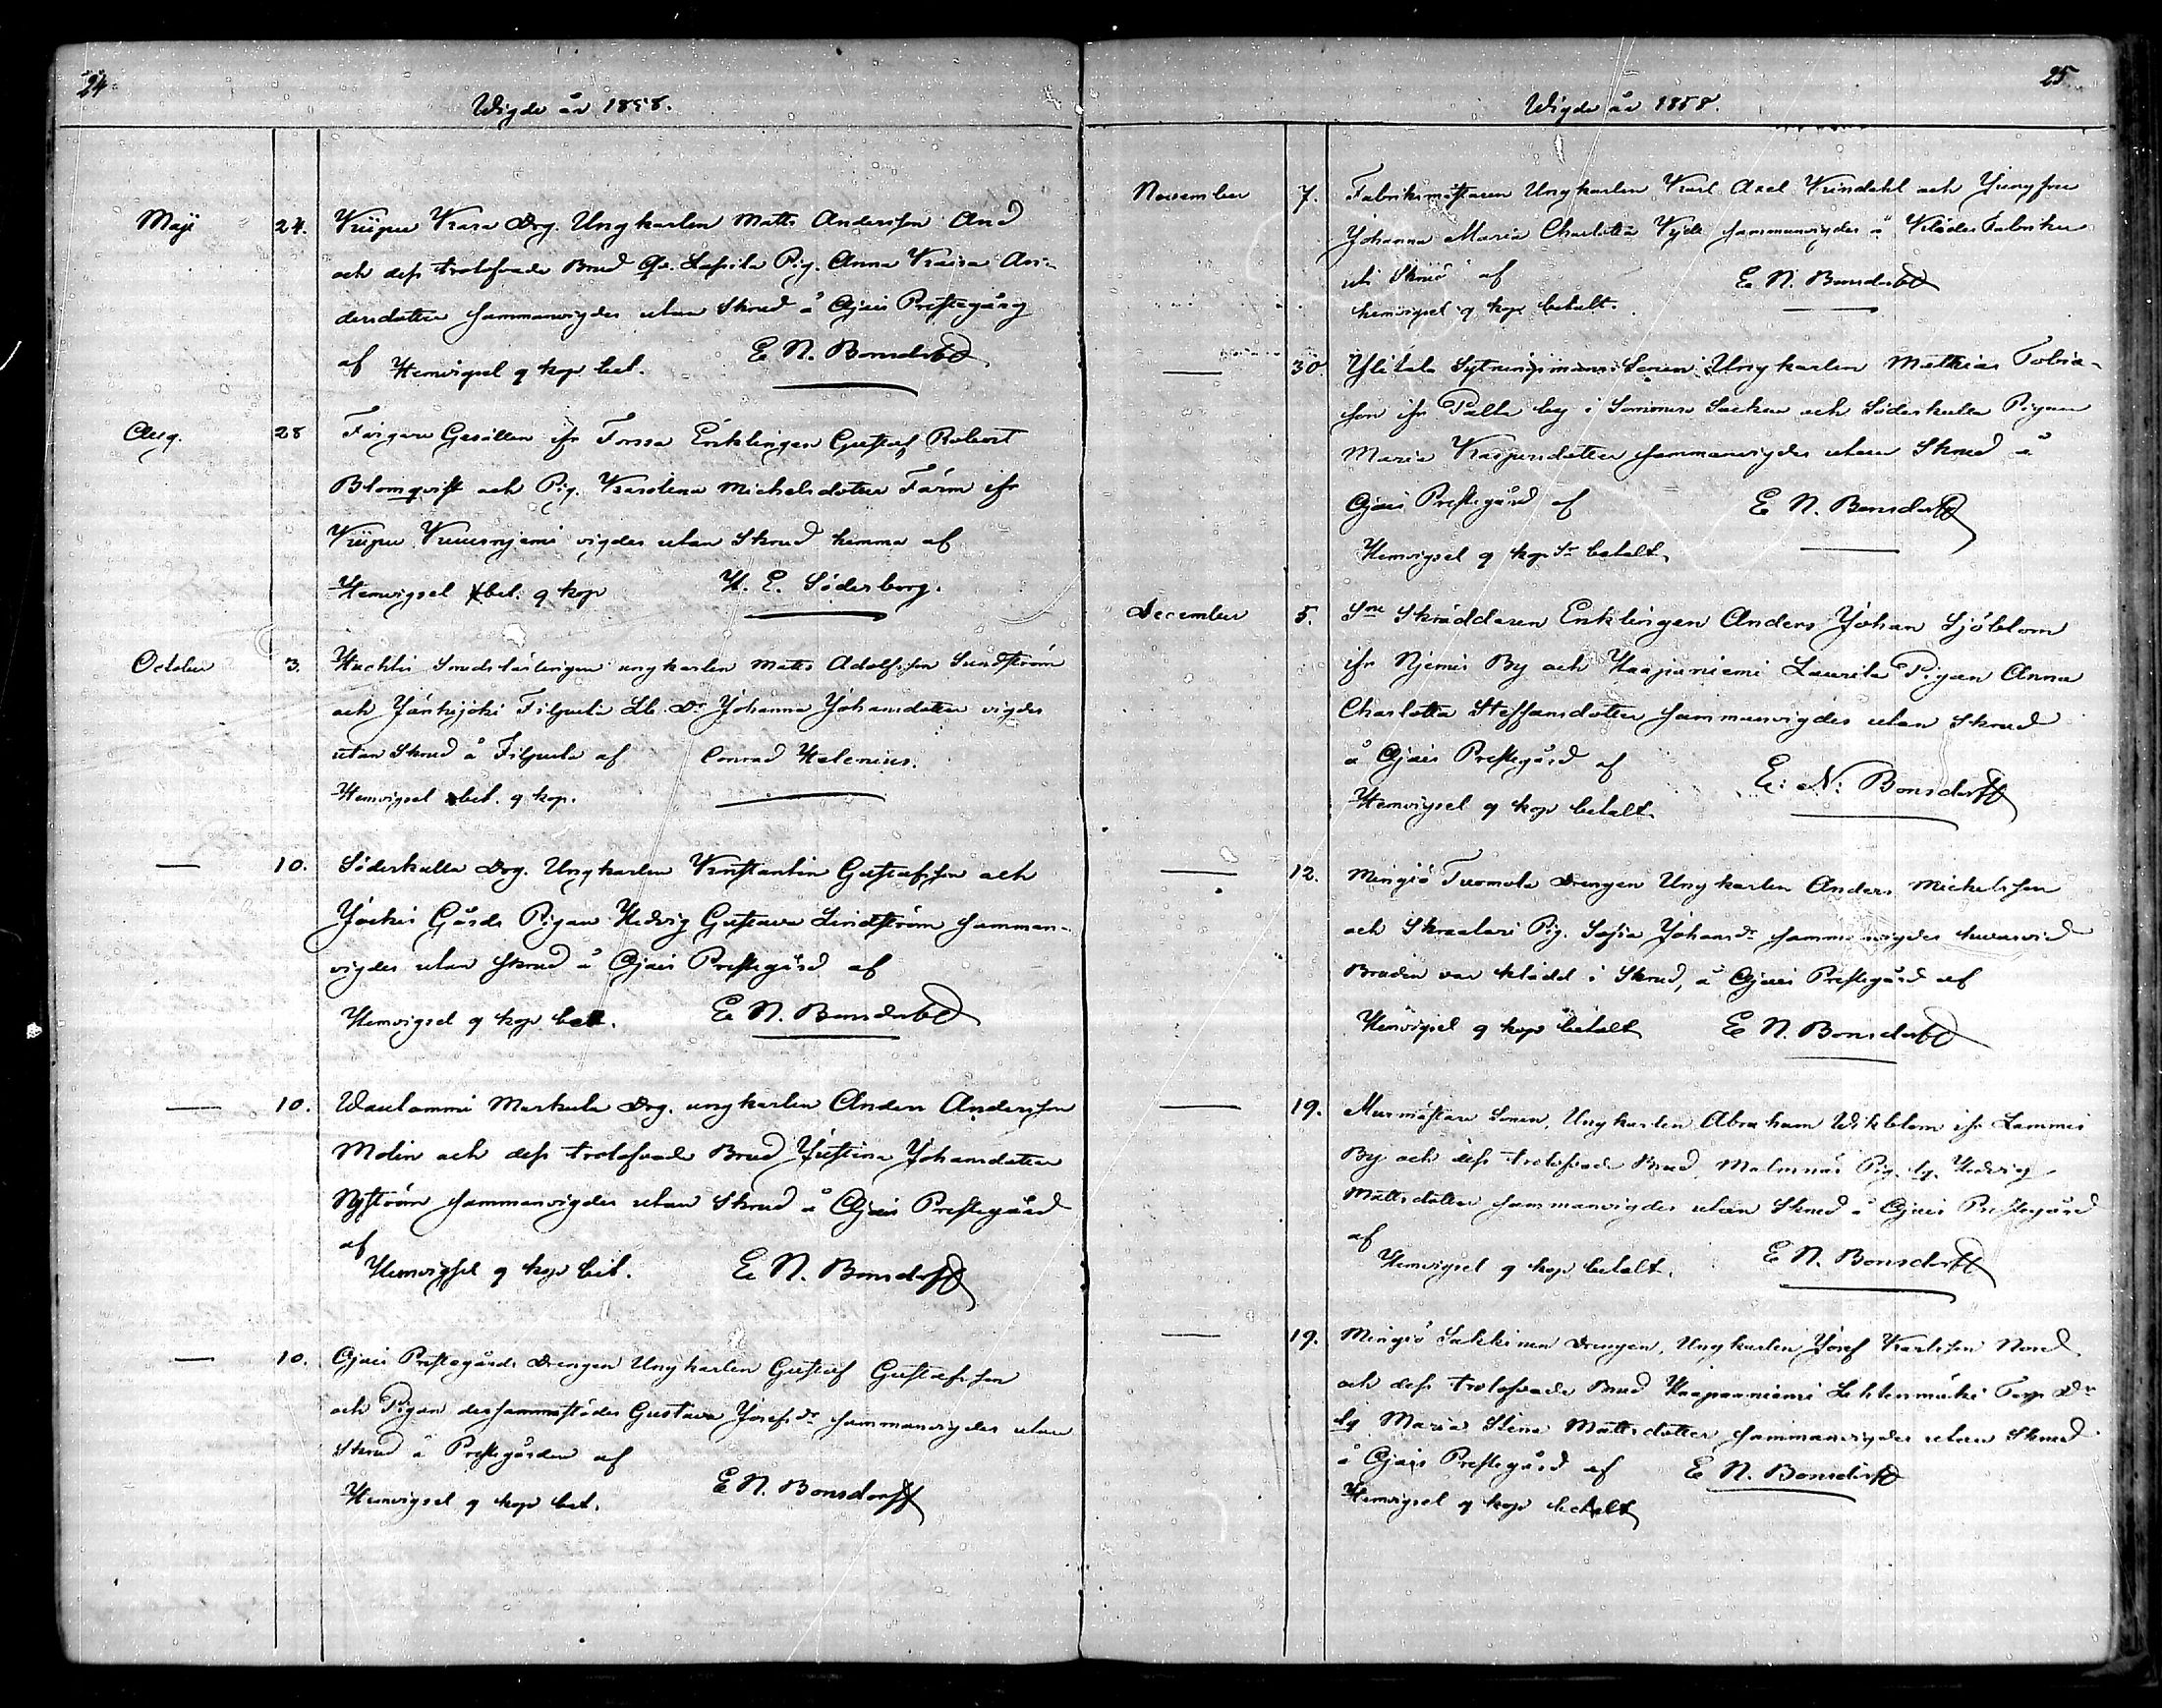 24.
Wigde år 1858.
Maji 24. Kiipu Krara Drg. Ungkarlen Matts Andersson And
och dess trolofvade Brud Qv. Lassila Pig. Anna Kaisa An-
dersdotter sammanvigdes utan Skrud å Ojais Prestegård
af Hemvigsel q kop bet. E. N. Bonsdorff
Aug. 28 Färgare Gesällen ifr Forssa Enklingen Gustaf Robert
Blomqvist och Pig. Karolina Michelsdotter Färm ifr
Kiipu vigdes utan Skrud hemma af
Hemvigsel bet. q kop H. E. Söderborg.
October 3. Huchti Smedslärlingen ungkarlen Matts Adolfsson Sundström
och Jänhijoki Filpula Lb. Dr Johanna Johansdotter vigdes
utan Skrud å Filpula af Conrad Helenius.
Hemvigsel bet. q kop.
— 10. Söderkulla Drg. Ungkarlen Konstantin Gustafsson och
Jockis Gårds Pigan Hedvig Gustava Lindström samman-
vigdes utan skrud å Ojais Prestegård af
Hemvigsel q kop bet. E. N. Bonsdorff
— 10. Waulammi Markula Drg. ungkarlen Anders Andersson
Molin och dess trolofvade Brud Justina Johansdotter
Nyström sammanvigdes utan Skrud å Ojais Prestegård
af
Hemvigsel q kop bet. E. N. Bonsdorff
— 10. Ojais Prestegårds Drengen Ungkarlen Gustaf Gustafsson
och Pigan dersammastädes Gustava Josefsdr sammanvigdes utan
Skrud å Prestegården af
Hemvigsel q kop bet. E. N. Bonsdorff
25
Wigde år 1858.
November 7. Fabriksmästaren Ungkarlen Karl Axel Vrindahl och Jungfru
Johanna Maria Charlotta sammanvigdes å Klädes Fabriken
uti af E. N. Bonsdorff
hemvigsel q kop betalt.
— 30 Ylitalo Sytningsmanns Sonen Ungkarlen Mathias Tobia-
son ifr Palla by i Somero Socken och Söderkulla Pigan
Maria Kaspersdotter sammanvigdes utan Skrud å
Ojais Prestegård af E. N. Bonsdorff
Hemvigsel q kop betalt.
December 5. Skräddaren Enklingen Anders Johan Sjöblom
ifr Njemis By och Haapaniemi Laurila Pigan Anna
Charlotta Steffansdotter sammanvigdes utan Skrud
å Ojais Prestegård af E: N: Bonsdorff
Hemvigsel q kop betalt.
— 12. Mingiö Tuomola Drengen Ungkarlen Anders Michelsson
och Pig. Sofia Johansdr sammanvigdes hvarvid
Bruden var klädd i Skrud, å Ojais Prestegård af
Hemvigsel q kop betalt E. N. Bonsdorff
— 19. Murmästare Sonen, Ungkarlen Abraham Wikblom ifr Lammis
By och dess trolofvade Brud, Malmnäs Pig. Hedvig
Mattsdotter sammanvigdes utan Skrud å Ojais Prestegård
af
Hemvigsel q kop betalt. E. N. Bonsdorff
— 19. Mingiö Sukkinen Drengen, Ungkarlen Josef Karlsson Nord
och dess trolofvade Brud Haapaniemi Lehtenmäki Torp Dr
Maria Stina Mattsdotter sammanvigdes utan Skrud
å Ojais Prestegård af E. N. Bonsdorff
Hemvigsel q kop betalt